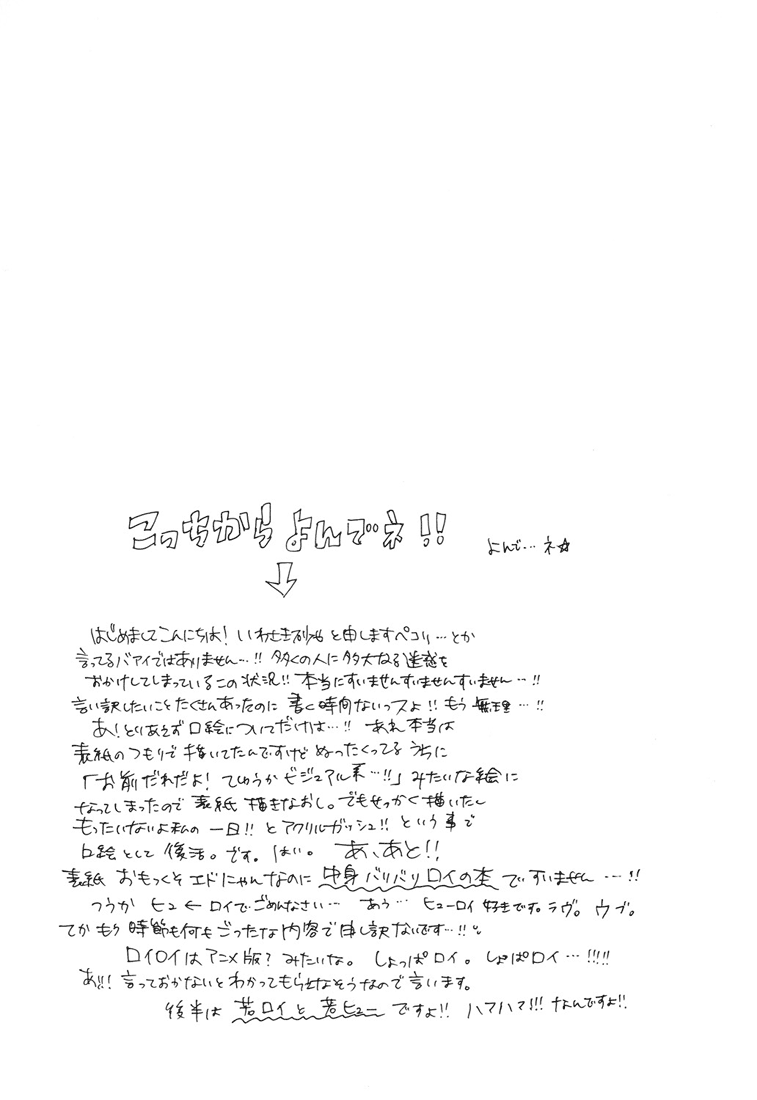 こっちからよんでネ!! よんで…ネ☆
↓
はじめましてこんにちは! いわさき と申しますペコリ…とか
言ってるバアイではありません…!! 多くの人に多大なる迷惑を
おかけしてしまっているこの状況!! 本当にすいませんすいませんすいません…!!
言い訳したいことたくさんあったのに 書く時間ないっスよ!! もう 無理…!!
あ! とりあえず口絵についてだけは…!! あれ本当は
表紙のつもりで描いてたんですけど ぬったくってるうちに
「お前だれだよ! てゆうかビジュアル系…!!」みたいな絵に
なってしまったので 表紙 描きなおし。でもせっかく描いたし
もったいないよ私の 一日!! とアクリルガッシュ!! という事で
口絵として 復活。です。はい。 あ、あと!!
表紙 おもっくそ エドにゃんなのに 中身バリバリロイの本 ですいません…!!
つうか ヒュ←ロイでごめんなさい… あう… ヒューロイ 好きです。ラヴ。ウブ。
てか もう 時節も何もごったな内容で申し訳ないです…!!
ロイロイはアニメ版? みたいな。 しょっぱロイ。しょぱロイ…!!!!
あ!!! 言っておかないとわかってもらえなそうなので言います。
後半は 若ロイと若ヒュー ですよ!! ハァハァ!!! なんですよ!!